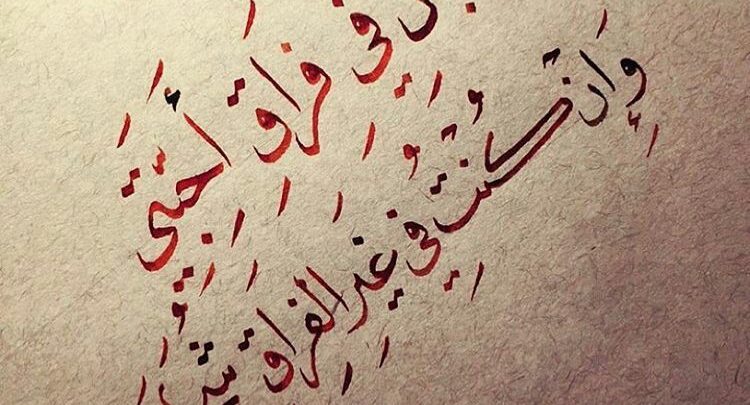 فِي فِرَاقِ أَحِبَّتِي
وَإِنْ كُنْتُ فِي غَيْرِ الفِرَاقِ